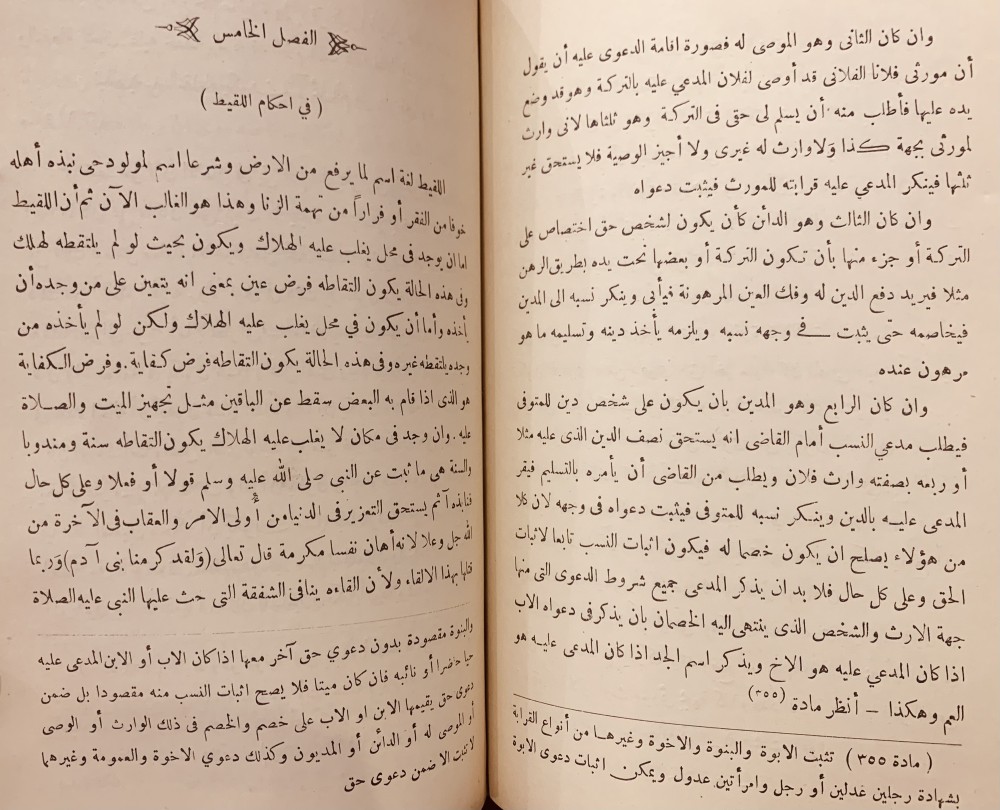 وان كان الثانى وهو الموصى له فصورة اقامة الدعوى عليه أن يقول
أن مورثى فلانا الفلانى قد أوصى لفلان المدعي عليه بالتركة وهو قد وضع
يده عليها فأطلب منه أن يسلم لى حقى فى التركة وهو ثلثاها لانى وارث
لمورثى بجهة كذا ولا وارث له غيرى ولا أجيز الوصية فلا يستحق غير
ثلثها فينكر المدعي عليه قرابته للمورث فيثبت دعواه
وان كان الثالث وهو الدائن كأن يكون لشخص حق اختصاص على
التركة أو جزء منها بأن تكون التركة أو بعضها تحت يده بطريق الرهن
مثلا فيريد دفع الدين له وفك العين المرهونة فيأبى وينكر نسبه الى المدين
فيخاصمه حتى يثبت في وجهه نسبه ويلزمه يأخذ دينه وتسليمه ما هو
مرهون عنده
وان كان الرابع وهو المدين بان يكون على شخص دين للمتوفى
فيطلب مدعي النسب أمام القاضى انه يستحق نصف الدين الذى عليه مثلا
أو ربعه بصفته وارث فلان ويطلب من القاضى أن يأمره بالتسليم فيقر
المدعى عليه بالدين وينكر نسبه للمتوفى فيثبت دعواه فى وجهه لان كلا
من هؤلاء يصلح ان يكون خصما له فيكون اثبات النسب تابعا لاثبات
الحق وعلى كل حال فلا بد ان يذكر المدعى جميع شروط الدعوى التى منها
جهة الارث والشخص الذى ينتهى اليه الخصمان بان يذكر فى دعواه الاب
اذا كان المدعى عليه هو الاخ ويذكر اسم الجد اذا كان المدعى عليه هو
العم وهكذا – أنظر مادة (٣٥٥)
( مادة ٣٥٥ ) تثبت الابوة والبنوة والاخوة وغيرها من أنواع القرابة
بشهادة رجلين عدلين أو رجل وامرأتين عدول ويمكن اثبات دعوى الابوة
الفصل الخامس
( في احكام اللقيط )
اللقيط لغة اسم لما يرفع من الارض وشرعا اسم لمولود حى نبذه أهله
خوفا من الفقر أو فراراً من تهمة الزنا وهذا هو الغالب الآن ثم أن اللقيط
اما ان يوجد فى محل يغلب عليه الهلاك ويكون بحيث لو لم يلتقطه لهلك
وفى هذه الحالة يكون التقاطه فرض عين بمعنى انه يتعين على من وجده أن
يأخذه وأما أن يكون في محل يغلب عليه الهلاك ولكن لو لم يأخذه من
وجده يلتقطه غيره وفى هذه الحالة يكون التقاطه فرض كفاية . وفرض الكفاية
هو الذى اذا قام به البعض سقط عن الباقين مثل تجهيز الميت والصلاة
عليه . وان وجد فى مكان لا يغلب عليه الهلاك يكون التقاطه سنة ومندوبا
والسنة هى ما ثبت عن النبى صلى الله عليه وسلم قولا أو فعلا وعلى كل حال
فنابذه آثم يستحق التعزير فى الدنيا من أولى الامر والعقاب فى الآخرة من
الله جل وعلا لانه أهان نفسا مكرمة قال تعالى (ولقد كرمنا بنى آدم) وربما
قتلها بهذا الالقاء ولأن القاءه ينافى الشفقة التى حث عليها النبى عليه الصلاة
والبنوة مقصودة بدون دعوي حق آخر معها اذا كان الاب أو الابن المدعى عليه
حيا حاضرا أو نائبه فان كان ميتا فلا يصح اثبات النسب منه مقصودا بل ضمن
دعوى حق يقيمها الابن او الاب على خصم والخصم فى ذلك الوارث أو الوصى
أو الموصى له أو الدائن أو المديون وكذلك دعوي الاخوة والعمومة وغيرهما
لا تثبت الا ضمن دعوى حق